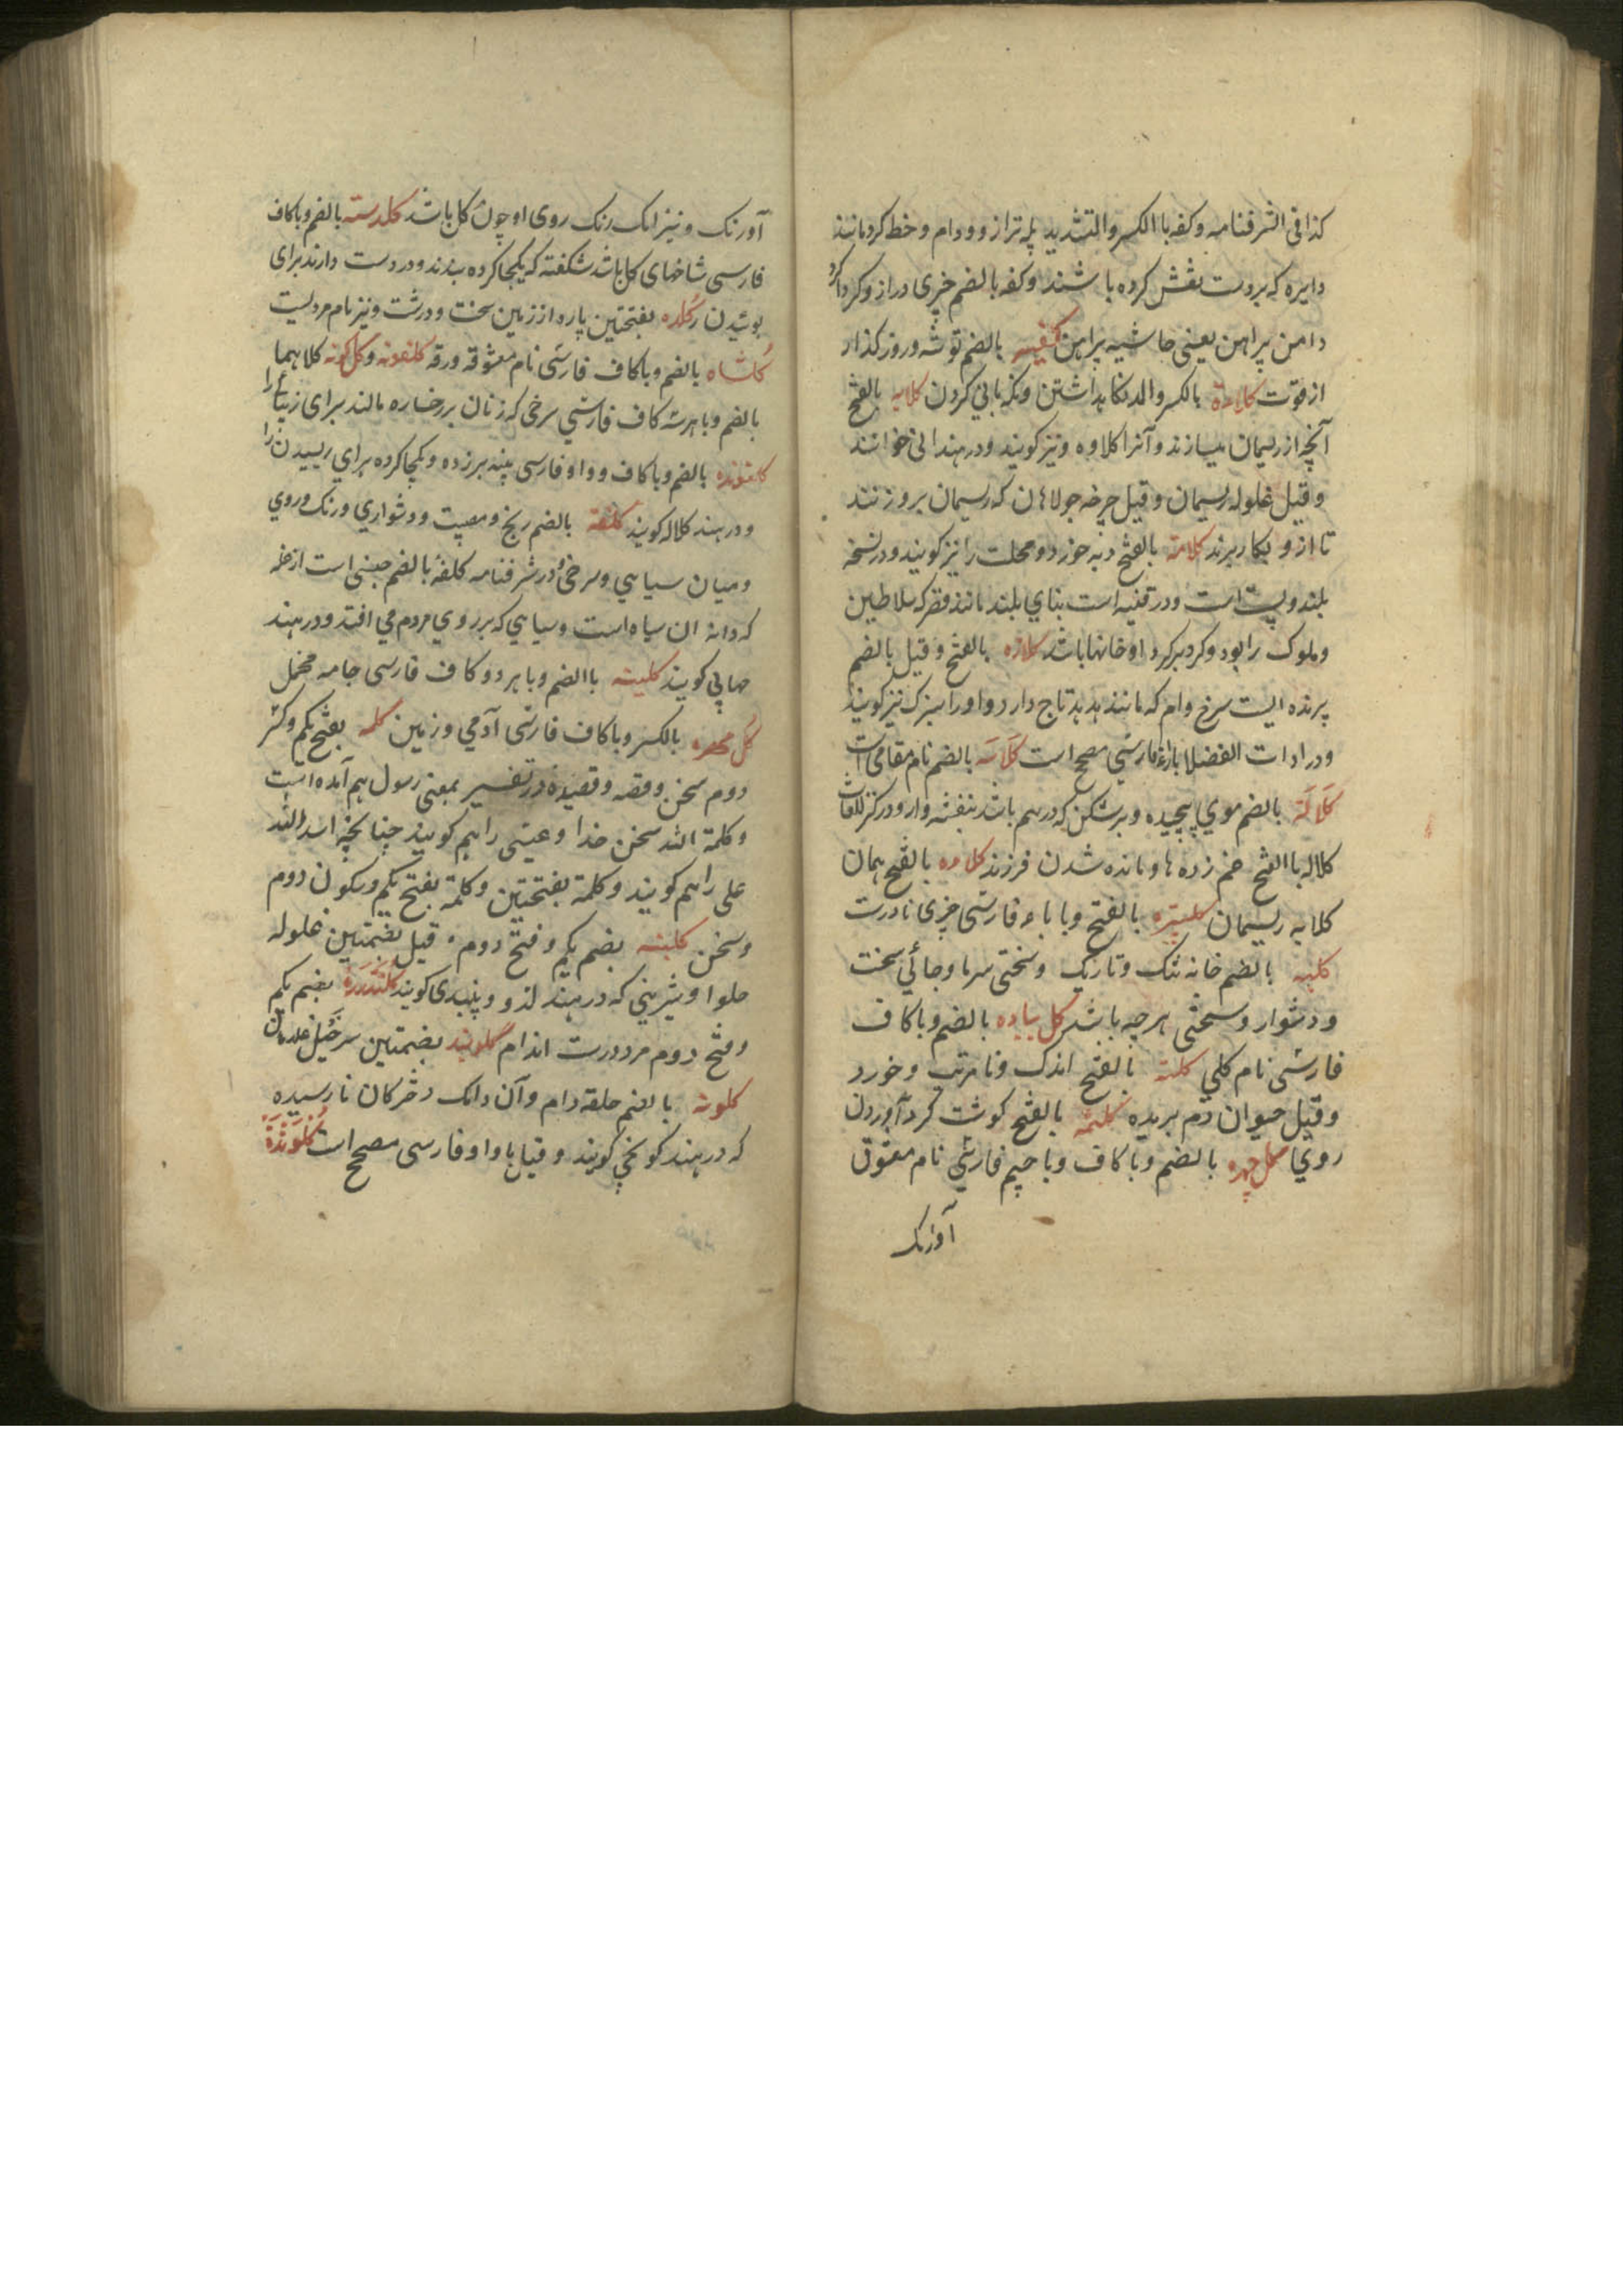 کذا فی الشرفنامه و کفه با الکسر والتشدید پله ترازو و دام و خط کرد مانند
دایره که بر دست نقش کرده باشند و کفه بالضم چیزی دراز و کرداکرد
دامن پیراهن یعنی حاشیه پیراهن کفیسه بالضم توشه و روز کذار
از قوت کلاءة بالکسر والمد نکاهداشتن و نکهبانی کردن کلابه بالفتح
آنچه از ریسمان میسازند و آنرا کلاوه و نیز کویند و در هند انی خوانند
و قیل غلوله ریسمان و قیل چرخه جولاهان که ریسمان برو زنند
تا ازو بکار برند کلاته بالفتح دیه خورد و محلت را نیز کویند و در نسخه
بلند و پست است و در قنیه است بنای بلند مانند قصر که سلاطین
و ملوک را بود و کرد برکرد او خانها باشد کلاژه بالفتح و قیل بالضم
پرنده ایست سرخ وام که مانند هدهد تاج دارد و او را سبزک نیز کویند
و در ادات الفضلا بازاء فارسی مصحح است کلاسه بالضم نام مقامی است
کلالة بالضم موی پیچیده و پرشکن که درهم باشد بنفشه وار و در کنز اللغات
کلاله با الفتح خم زده ها و مانده شدن فرزند کلاوه بالفتح همان
کلابه ریسمان کلپتره بالفتح و با باء فارسی چیزی نادرست
کلبه بالضم خانه تنک و تاریک و سختی سرما و جائی سخت
و دشوار و سختی هرچه باشد کل پیاده بالضم و با کاف
فارسی نام کلی کلته بالفتح اندک و نامرتب و خورد
و قیل حیوان دم بریده کلثمه بالفتح کوشت کرد آوردن
روی کل چهره بالضم و با کاف و با جیم فارسی نام معشوق
آورنک
آورنک و نیز انک رنک روی او چون کل باشد کلدسته بالضم و با کاف
فارسی شاخهای کل باشد شکفته که یکجا کرده بندند و در دست دارند برای
بوئیدن کلده بفتحتین پاره از زمین سخت و درشت و نیز نام مردیست
کلشاه بالضم و با کاف فارسی نام معشوقه ورقه کلغونه و کل کونه کلاهما
بالضم و با هرسه کاف فارسی سرخی که زنان بر رخساره مالند برای زیبائی را
کلغونده بالضم و با کاف و واو فارسی پنبه برزده و یکجا کرده برای ریسیدن را
و در هند کلاله کویند کلفة بالضم رنج و مصیبت و دشواری و رنک و روی
و میان سیاهی و سرخی و در شرفنامه کلفه بالضم جنسی است از غله
که دانه ان سیاه است و سیاهی که بر روی مردم می افتد و در هند
جهاپی کویند کلینه با الضم و با هر دو کاف فارسی جامه مخمل
کل مهره بالکسر و با کاف فارسی آدمی و زمین کلمه بفتح یکم و کسر
دوم سخن و قصه و قصیده و در تفسیر بمعنی رسول هم آمده است
و کلمة الله سخن خدا و عیسی را هم کویند چنانچه اسد الله
علی را هم کویند و کلمة بفتحتین و کلمة بفتح یکم و سکون دوم
و سخن کلبنه بضم یکم و فتح دوم و قیل بضمتین غلوله
حلوا و شیرینی که در هند لدو و پیندی کویند کلندره بضم یکم
و فتح دوم مردم درست اندام کلوبند بضمتین سرخیل غلامان
کلونه بالضم حلقه دام و آن دانک دخترکان نارسیده
که در هند کونجی کویند و قیل با واو فارسی مصحح است کلونده